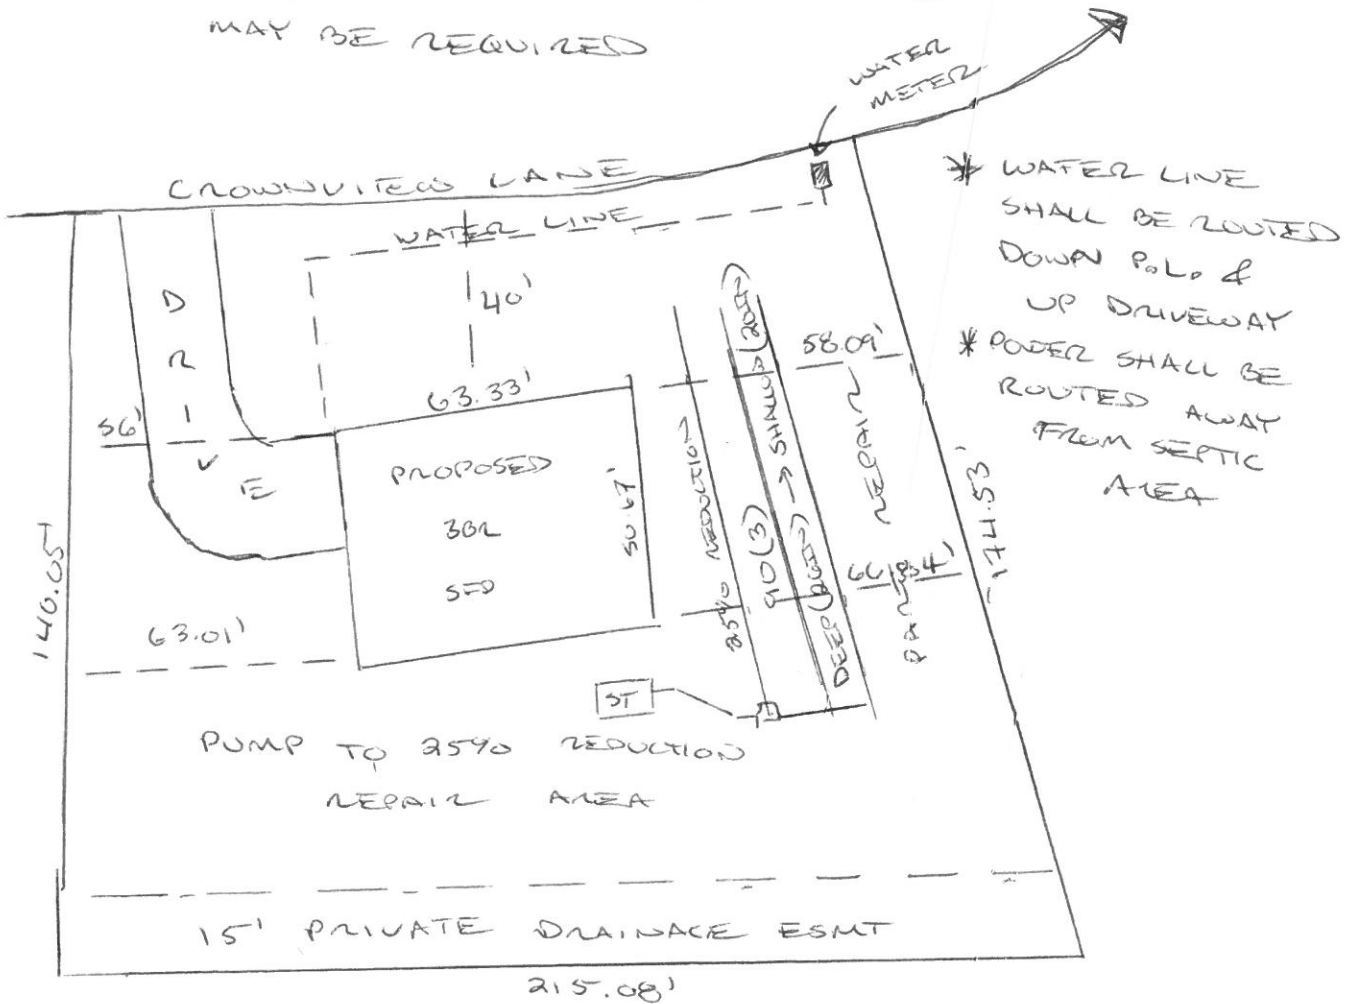 MAY BE REQUIRED
WATER
METER
CROWNVIEW LANE
WATER LINE
* WATER LINE
SHALL BE ROUTED
DOWN P.L. &
UP DRIVEWAY
* POWER SHALL BE
ROUTED AWAY
FROM SEPTIC
AREA
DRIVE
40'
63.33'
56'
58.09'
PROPOSED
3BR
SFD
50.67'
25% REDUCTION
90(3)
DEEP(26IN) → SHALLOW(20IN)
PART REPAIR
174.53'
140.05'
63.01'
ST
PUMP TO 25% REDUCTION
REPAIR AREA
15' PRIVATE DRAINAGE ESMT
215.08'